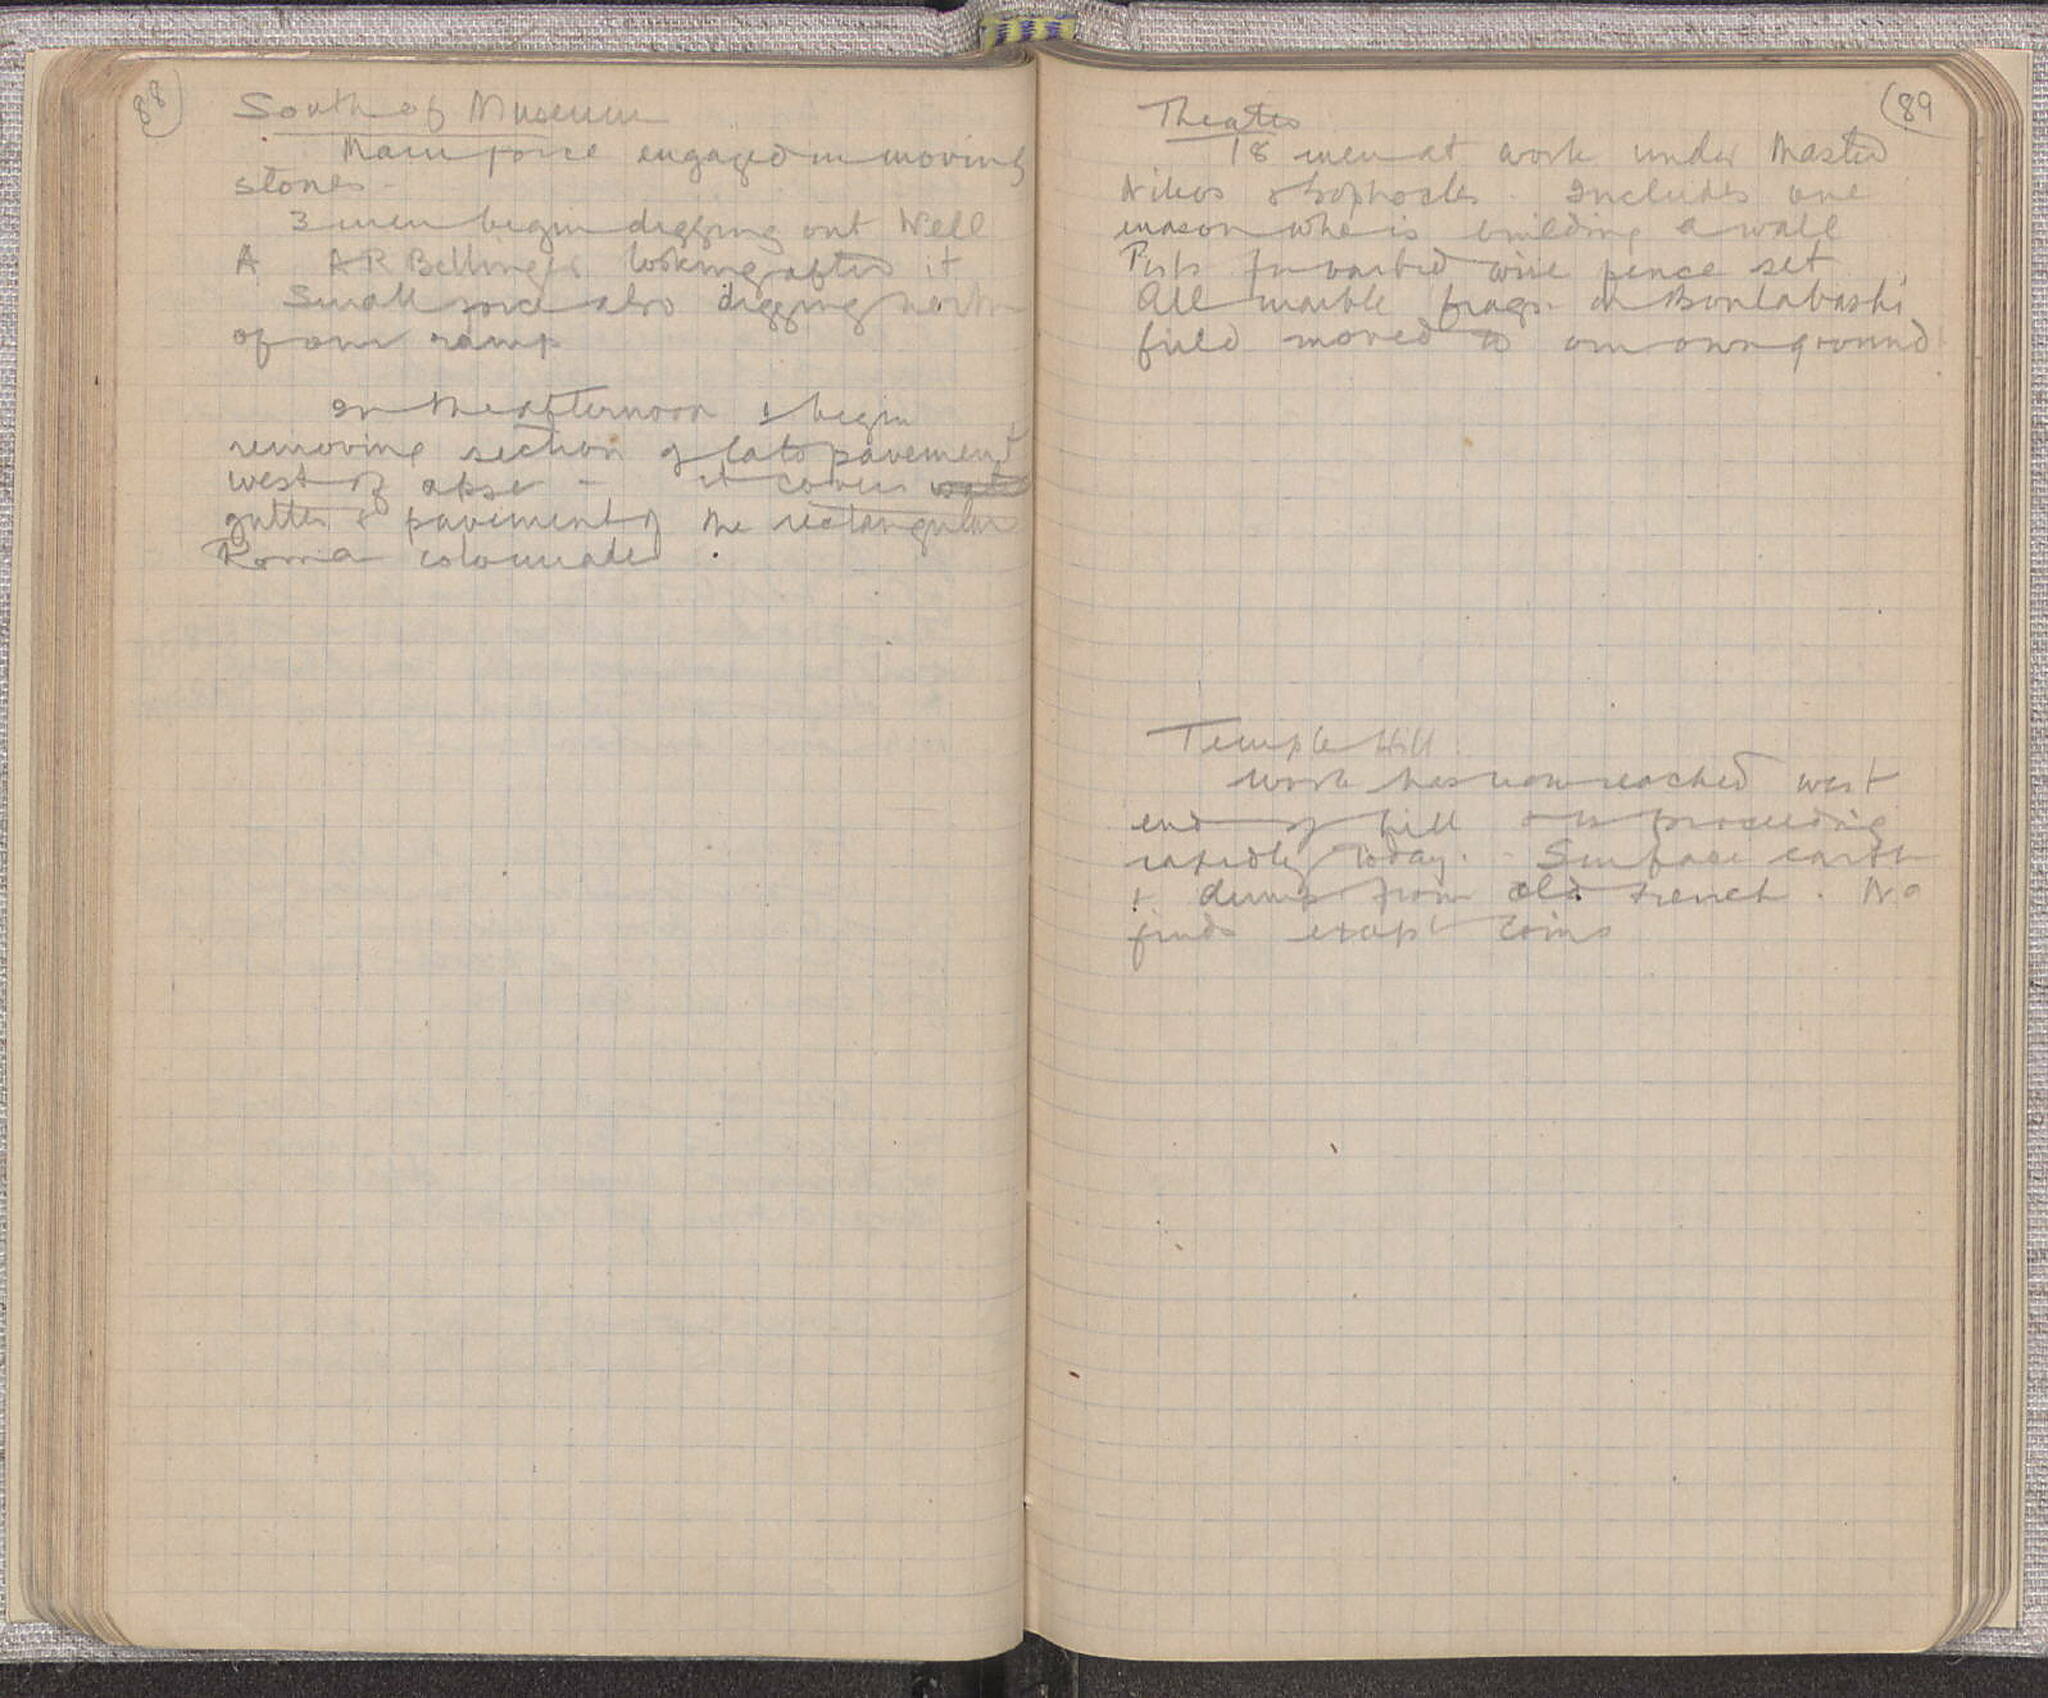 88
South of Museum
Main force engaged in moving
stones -
3 men begin digging out Well
A AR Bellinger looking after it
Small force also digging north
of our ramp
In the afternoon I begin
removing section of late pavement
west of apse - it covers
gutter & pavement of the rectangular
Roman colonnade.
89
Theatre
18 men at work under Master
Nikos & Sophocles. Includes one
mason who is building a wall
Posts for barbed wire fence set
All marble frags. in Boulabashi
field moved to our own ground
Temple Hill.
Work has now reached west
end of hill & is proceeding
rapidly today. - Surface earth
& dump from old trench. No
finds except coins